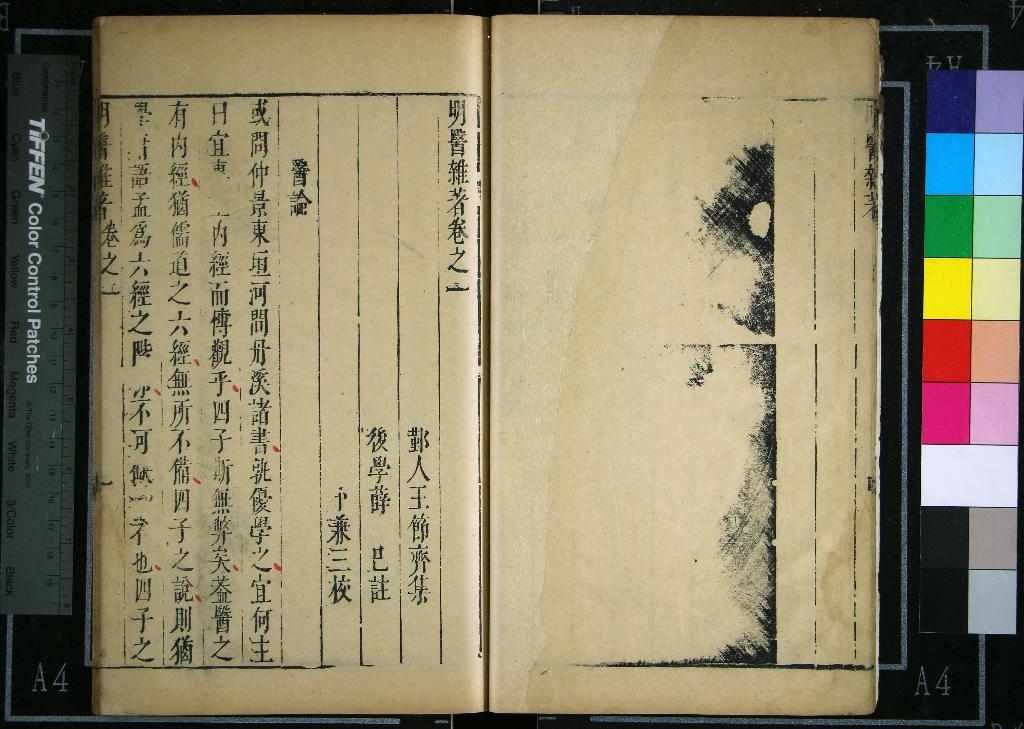 明醫雜著卷之一
鄞人王節齊集
後學薛 已註
兼三校
醫論
或問仲景東垣河間丹溪諸書孰優學之宜何主
曰宜專 內經而傳觀乎四子斯無弊矣葢醫之
有內經猶儒道之六經無所不備四子之說則猶
學 語孟爲六經之階 不可 者也四子之
明醫雜著卷之一
TIFFEN Color Control Patches
Centimetres
Blue
Cyan
Green
Yellow
Red
Magenta
White
3/Color
Black
A4
A4
A4